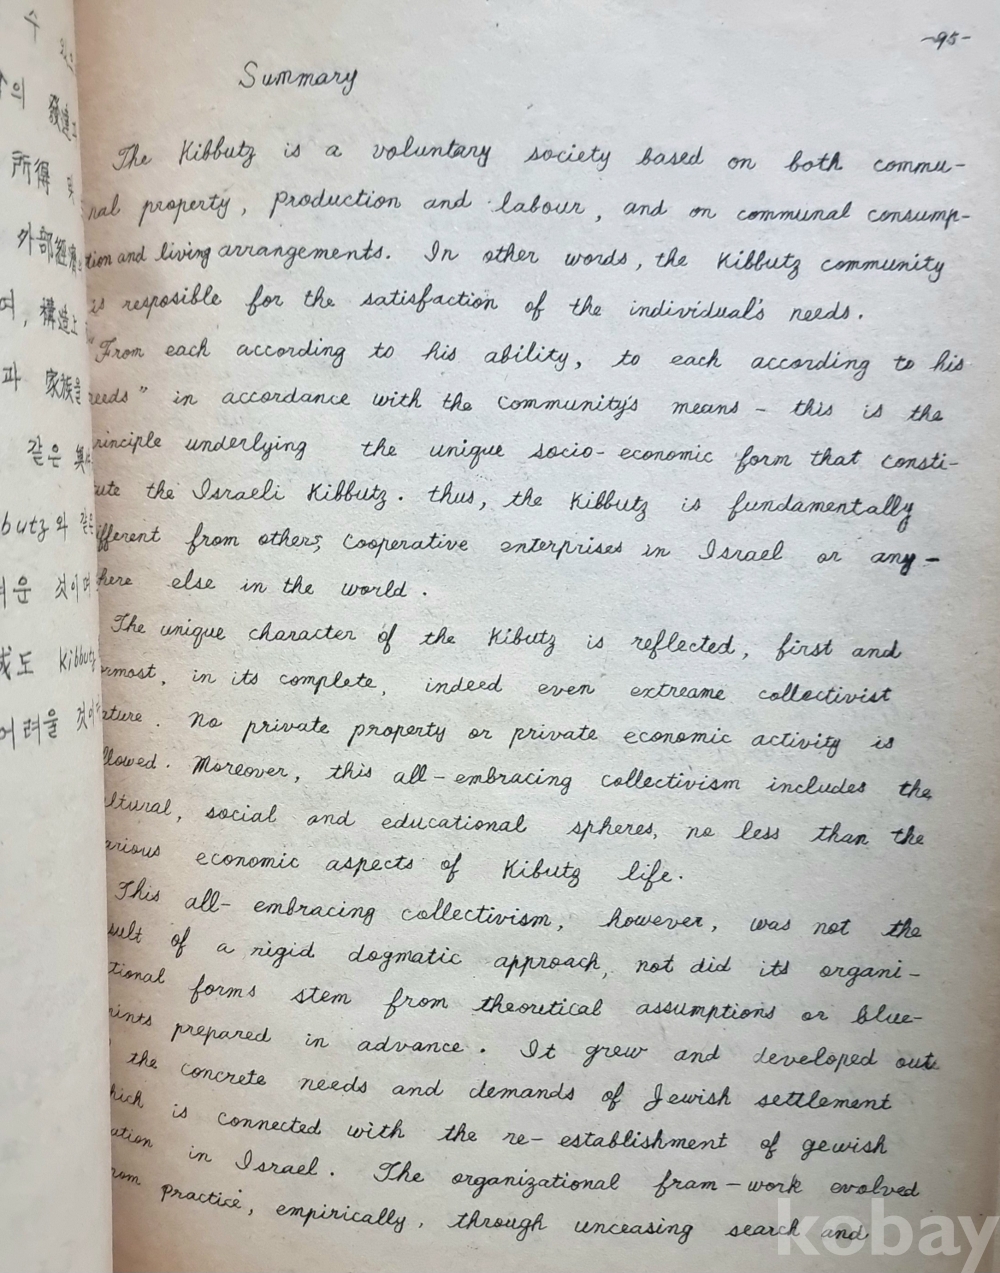 수
의 發達
所得 및
外部經濟
여, 構造上
과 家族을
같은
butz와 같은
운 것이며
成도 Kibbutz
어려울 것이
-95-
Summary
The Kibbutz is a voluntary society based on both commu-
nal property, production and labour, and on communal consump-
tion and living arrangements. In other words, the Kibbutz community
is resposible for the satisfaction of the individual's needs.
"From each according to his ability, to each according to his
needs" in accordance with the community's means - this is the
rinciple underlying the unique socio-economic form that consti-
ute the Israeli Kibbutz. thus, the Kibbutz is fundamentally
ifferent from others; cooperative enterprises in Israel or any-
here else in the world.
The unique character of the Kibutz is reflected, first and
ormost, in its complete, indeed even extreame collectivist
ature. No private property or private economic activity is
llowed. Moreover, this all-embracing collectivism includes the
ltural, social and educational spheres, no less than the
arious economic aspects of Kibutz life.
This all-embracing collectivism, however, was not the
sult of a rigid dogmatic approach, not did its organi-
tional forms stem from theoretical assumptions or blue-
rints prepared in advance. It grew and developed out
the concrete needs and demands of Jewish settlement
hich is connected with the re-establishment of gewish
ation in Israel. The organizational fram-work evolved
rom practice, empirically, through unceasing search and
kobay